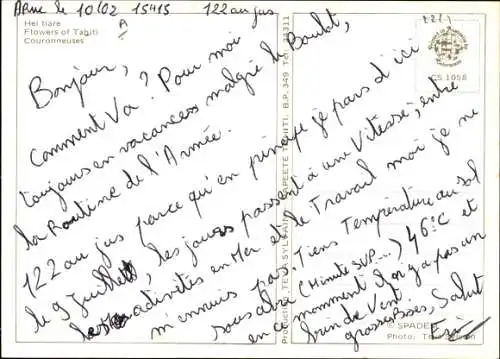 Arue le 10/02 15H15 122 au jus
Hei tiare
Flowers of Tahiti
Couronneuses
A
CS 1058
Bonjour,
Comment Va? Pour moi
toujours en vacances malgré le Boulot,
la Routine de l'Armée.
122 au jus parce qu'en principe je pars d'ici
le 9 Juillet, les jours passent à une Vitesse, entre
les activités en Mer et le Travail moi je ne
m'ennuis pas. Tiens Température au sol
sous abri (Minute SVP...) 46°C et
en ce momment Il n'y a pas un
brin de Vent.
grosses Bises, Salut
PAPEETE TAHITI. B.P. 349
© SPADEM